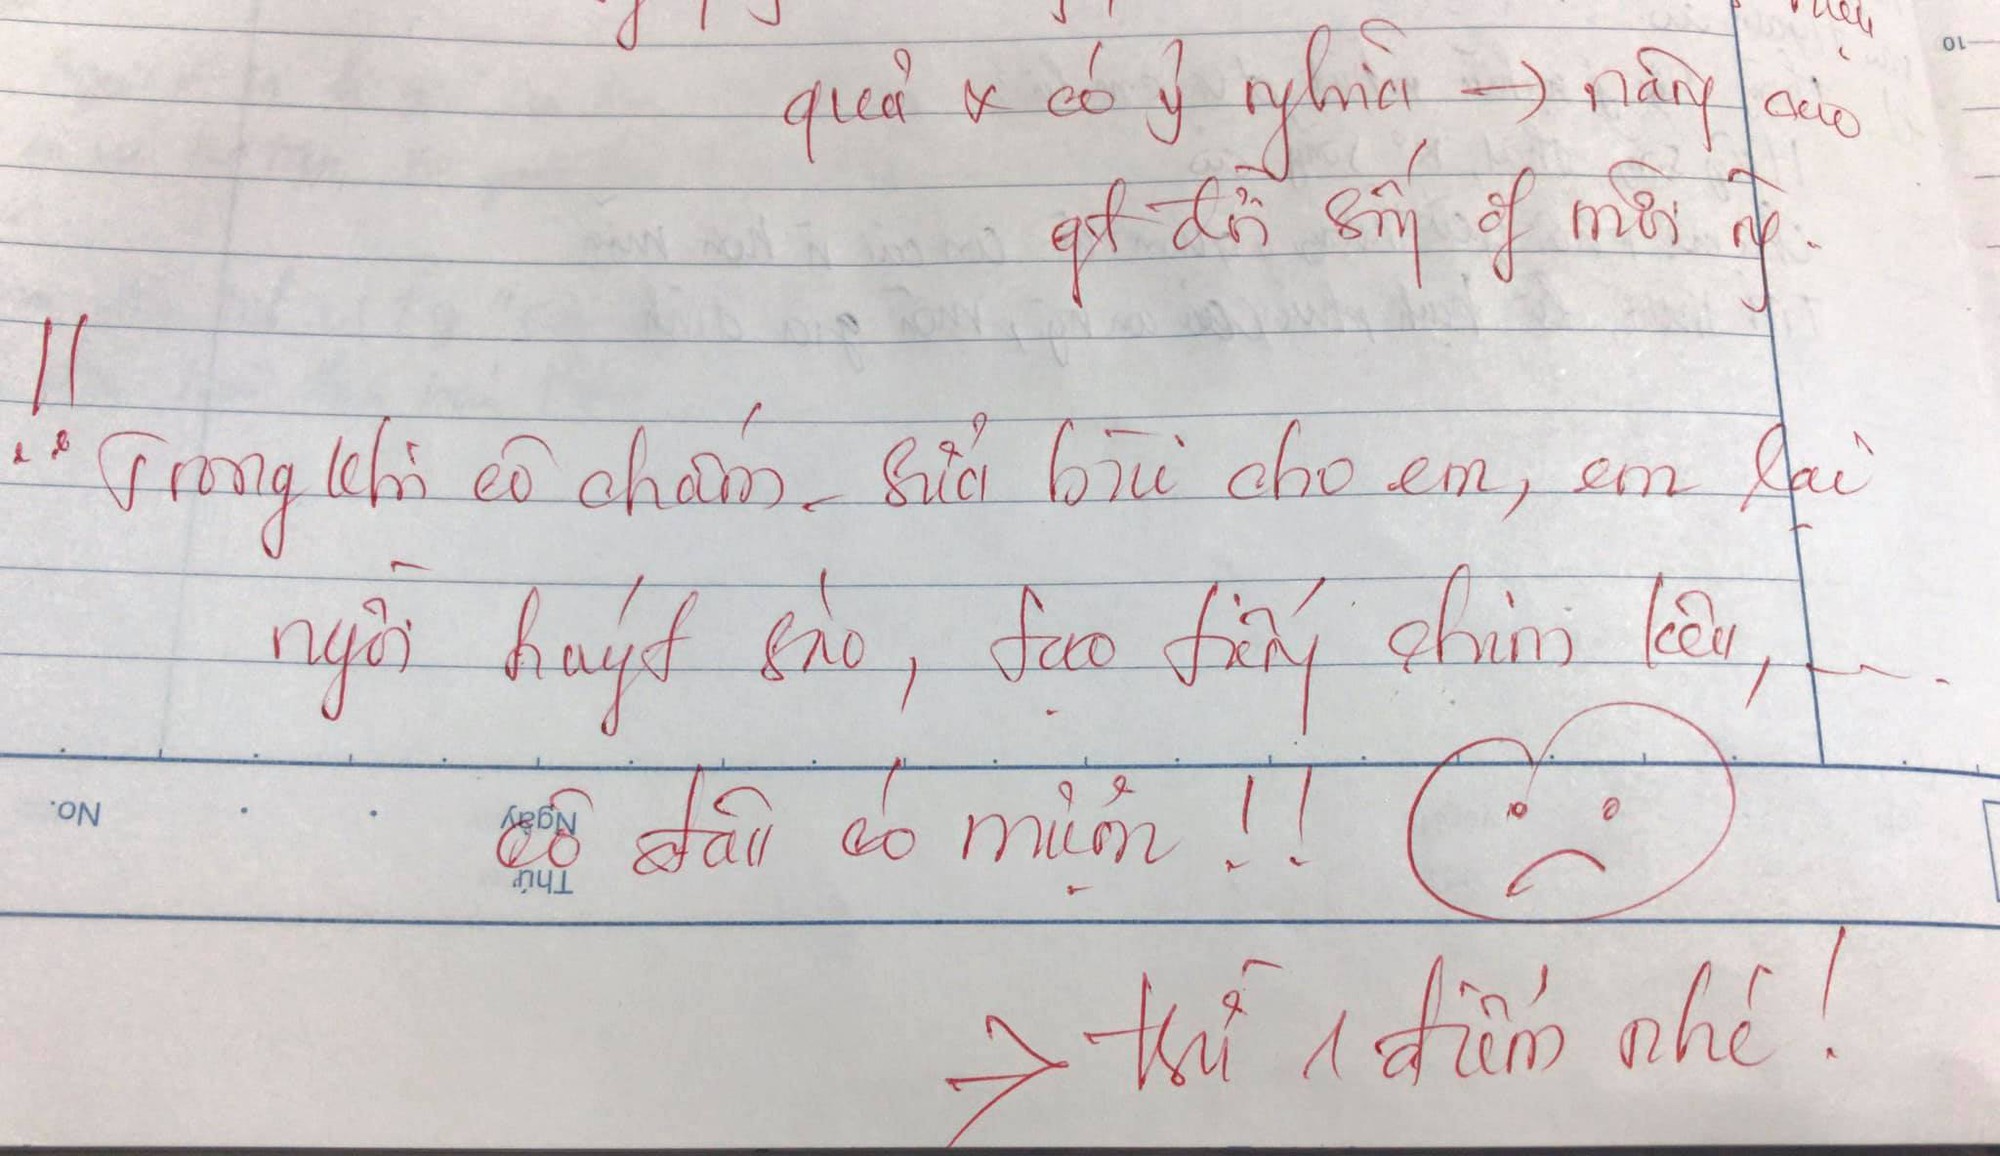 quả & có ý nghĩa → nâng cao
gt đời sống of mỗi ng.
Trong khi cô chấm - sửa bài cho em, em lại
ngồi huýt sáo, tạo tiếng chim kêu, ....
cô đâu có mượn!!
→ trừ 1 điểm nhé!
No.
Ngày
Thứ
10